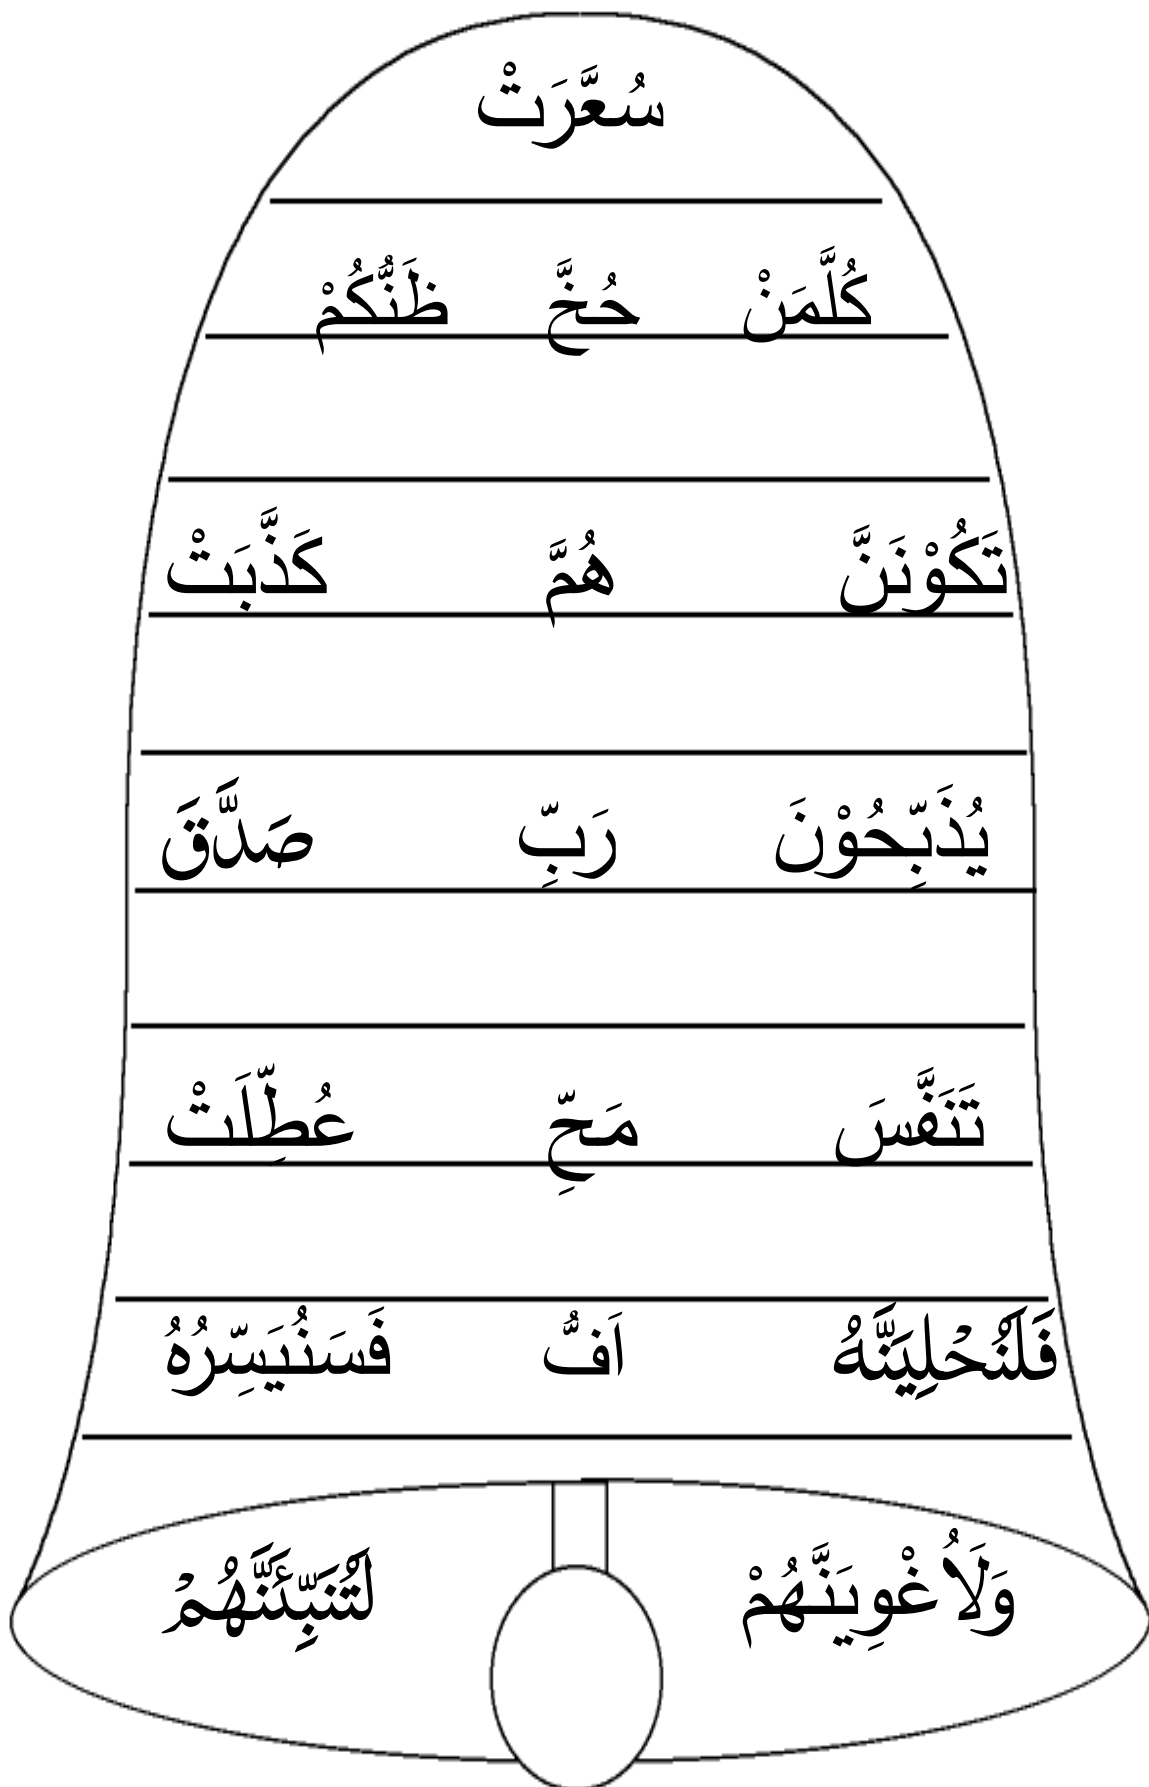 سُعَّرَتْ
كُلَّمَنْ حُخَّ ظَنُّكُمْ
تَكُوْنَنَّ هُمَّ كَذَّبَتْ
يُذَبِّحُوْنَ رَبِّ صَدَّقَ
تَنَفَّسَ مَحِّ عُطِّلَتْ
فَلَنُحْلِيَنَّهُ اَفُّ فَسَنُيَسِّرُهُ
وَلَاُغْوِيَنَّهُمْ لَتُنَبِّئَنَّهُمْ